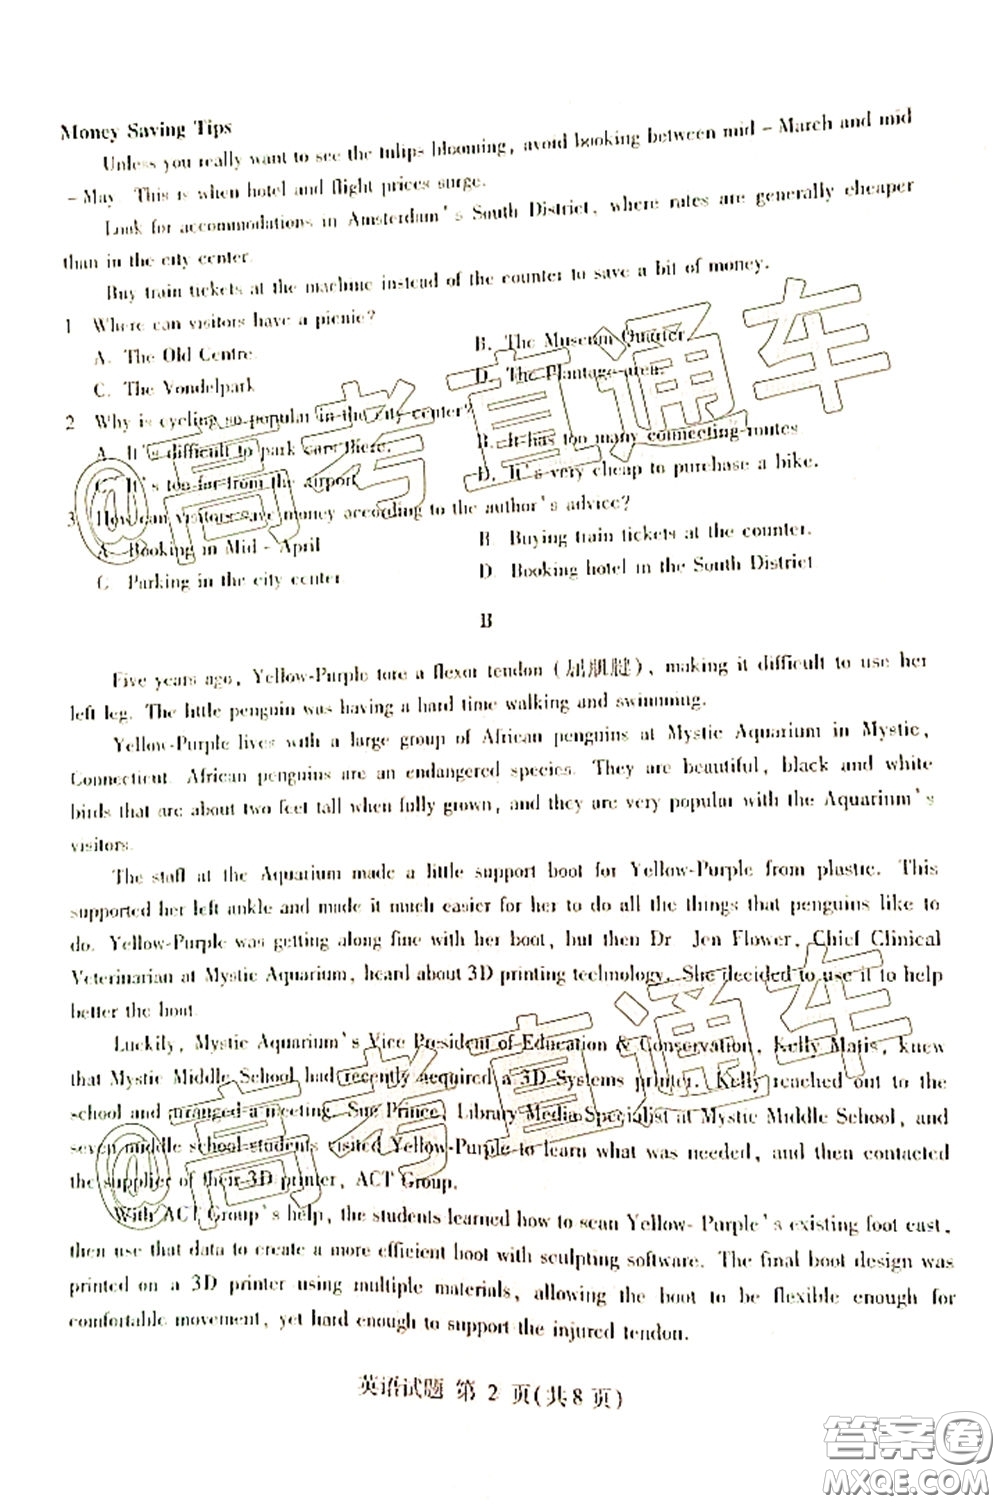 Money Saving Tips
Unless you really want to see the tulips blooming, avoid booking between mid - March and mid
- May. This is when hotel and flight prices surge.
Look for accommodations in Amsterdam's South District, where rates are generally cheaper
than in the city center.
Buy train tickets at the machine instead of the counter to save a bit of money.
1 Where can visitors have a picnic?
A. The Old Centre. B. The Museum Quarter.
C. The Vondelpark D. The Plantage area.
2 Why is cycling so popular in the city center?
A. It's difficult to park cars there. B. It has too many connecting routes
C. It's too far from the airport D. It's very cheap to purchase a bike.
3 How can visitors save money according to the author's advice?
A. Booking in Mid - April B. Buying train tickets at the counter.
C. Parking in the city center D. Booking hotel in the South District
B
Five years ago, Yellow-Purple tore a flexor tendon (屈肌腱), making it difficult to use her
left leg. The little penguin was having a hard time walking and swimming.
Yellow-Purple lives with a large group of African penguins at Mystic Aquarium in Mystic,
Connecticut. African penguins are an endangered species. They are beautiful, black and white
birds that are about two feet tall when fully grown, and they are very popular with the Aquarium's
visitors.
The staff at the Aquarium made a little support boot for Yellow-Purple from plastic. This
supported her left ankle and made it much easier for her to do all the things that penguins like to
do. Yellow-Purple was getting along fine with her boot, but then Dr. Jen Flower, Chief Clinical
Veterinarian at Mystic Aquarium, heard about 3D printing technology. She decided to use it to help
better the boot.
Luckily, Mystic Aquarium's Vice President of Education & Conservation, Kelly Matis, knew
that Mystic Middle School had recently acquired a 3D Systems printer. Kelly reached out to the
school and arranged a meeting. Sue Prince, Library Media Specialist at Mystic Middle School, and
seven middle school students visited Yellow-Purple to learn what was needed, and then contacted
the supplier of their 3D printer, ACT Group.
With ACT Group's help, the students learned how to scan Yellow- Purple's existing foot cast,
then use that data to create a more efficient boot with sculpting software. The final boot design was
printed on a 3D printer using multiple materials, allowing the boot to be flexible enough for
comfortable movement, yet hard enough to support the injured tendon.
英语试题 第 2 页(共8 页)
@高考直通车
@高考直通车
答案卷
MXQE.COM